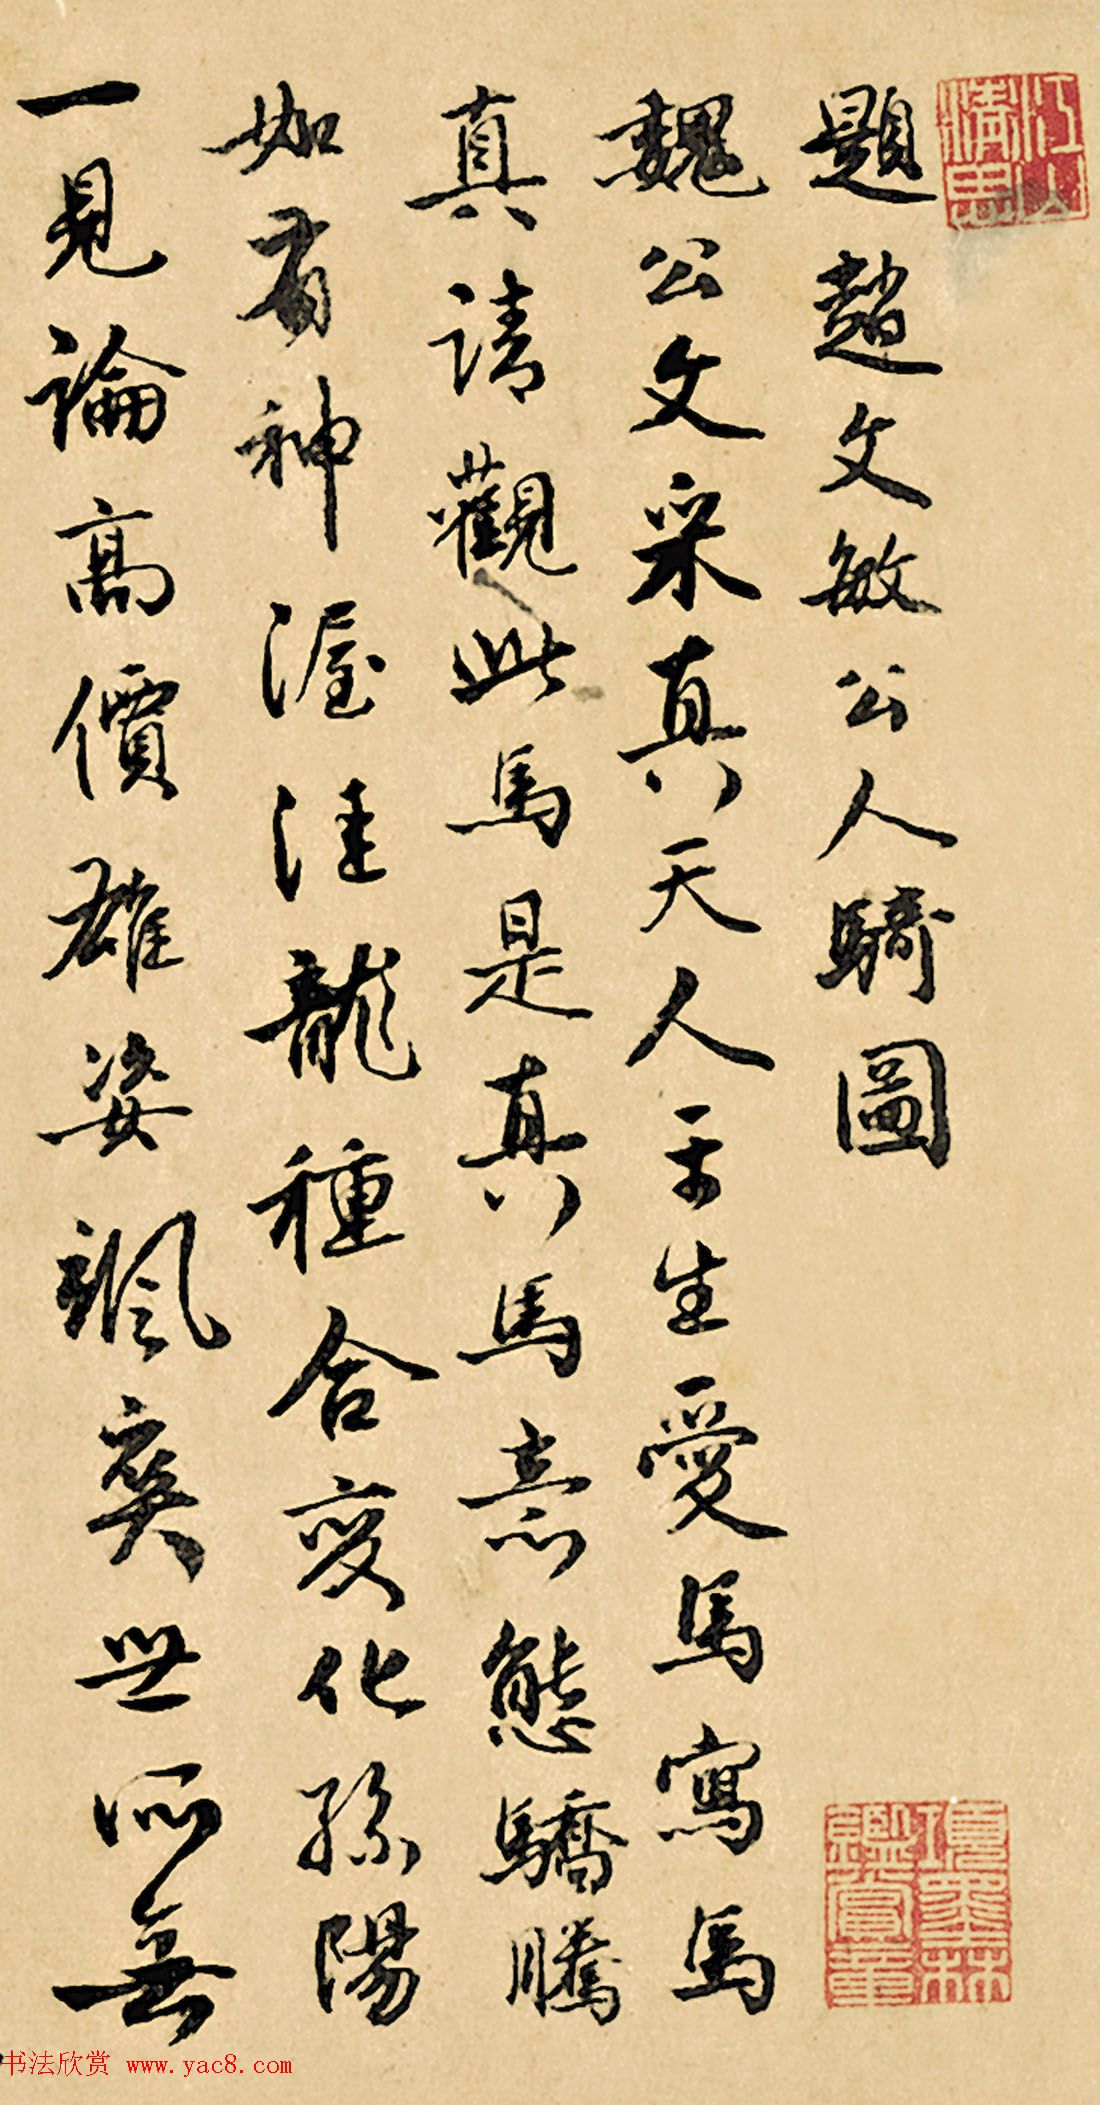 題趙文敏公人騎圖
魏公文采真天人平生愛馬寫馬
真請觀此馬是真馬意態驕騰
如有神渥洼龍種合變化孫陽
一見論高價雄姿颯爽世所無
书法欣赏 www.yac8.com